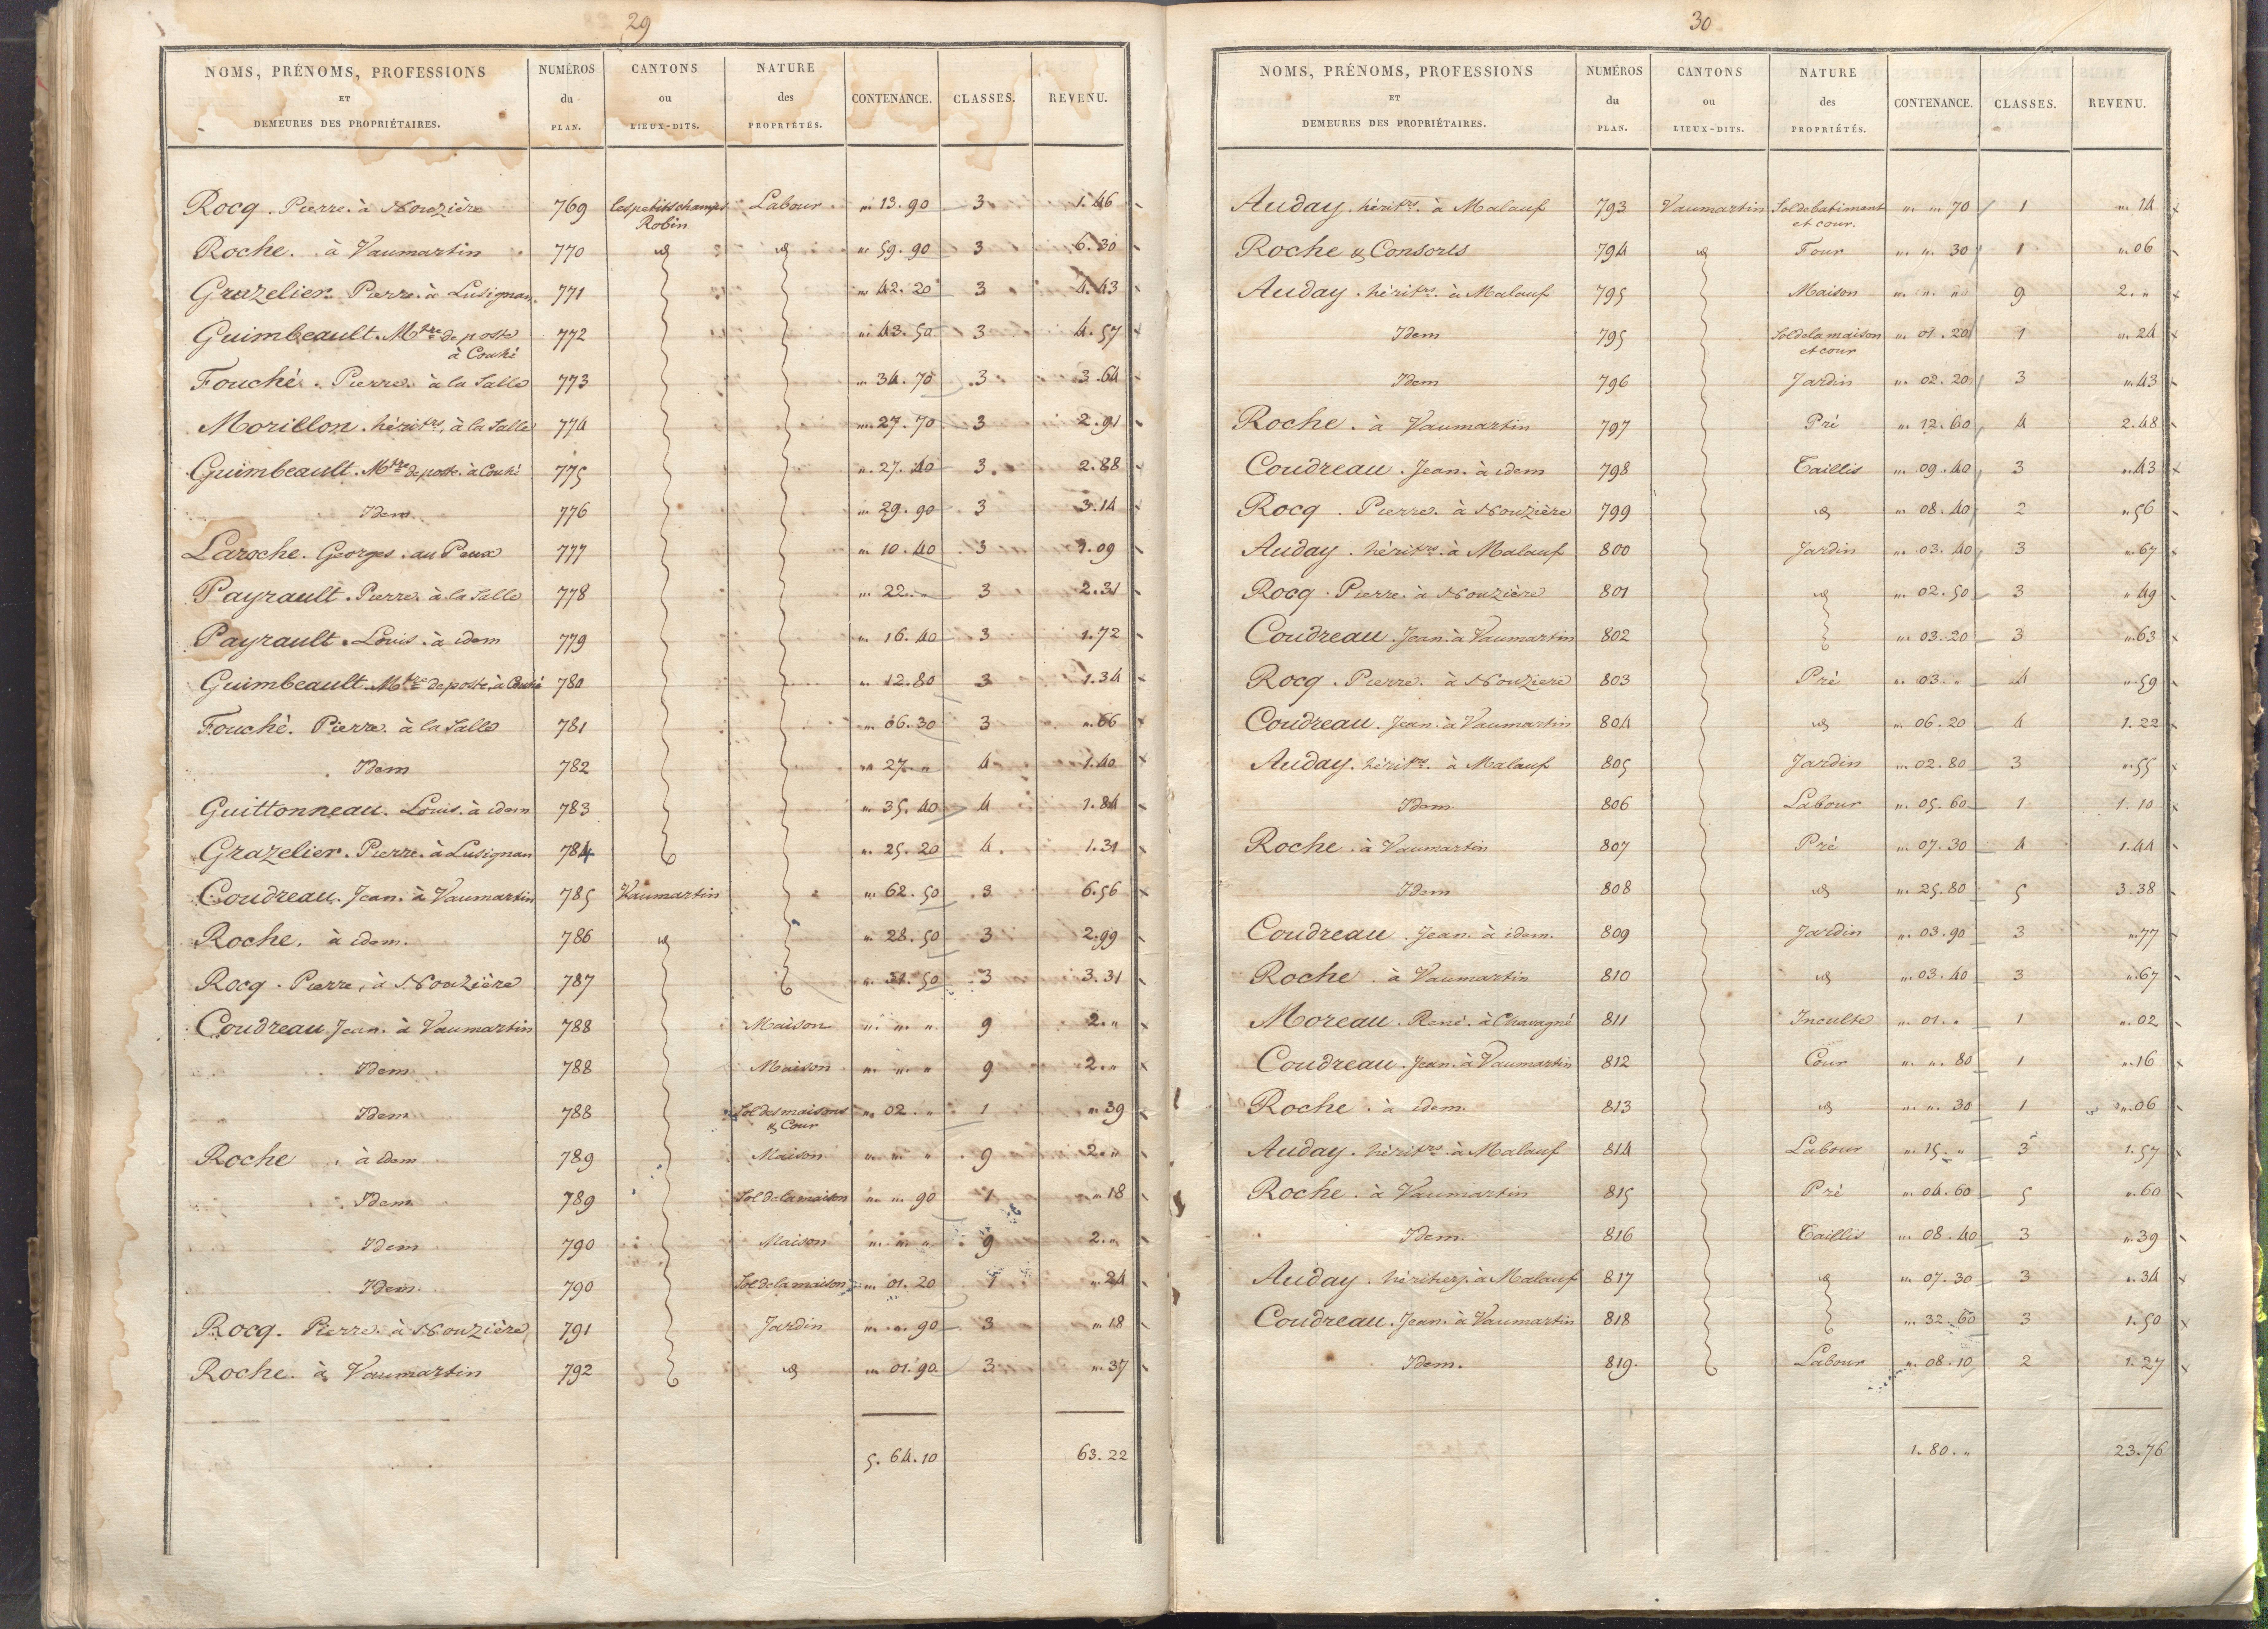 29
NOMS, PRÉNOMS, PROFESSIONS ET DEMEURES DES PROPRIÉTAIRES. NUMÉROS du PLAN. CANTONS ou LIEUX-DITS. NATURE des PROPRIÉTÉS. CONTENANCE. CLASSES. REVENU.
Rocq. Pierre. à Nouzière 769 les petits champs Labour " 13. 90 3 1. 46
Robin
Roche. à Vaumartin 770 id id " 59. 90 3 6. 30
Grazelier. Pierre. à Lusignan. 771 " 42. 20 3 4. 43
Guimbeault. Mtre de poste 772 " 43. 50 3 4. 57
à Couhé
Fouché. Pierre. à la Salle 773 " 34. 70 3 3. 64
Morillon. héritrs. à la Salle 774 " 27. 70 3 2. 91
Guimbeault. Mtre de poste. à Couhé 775 " 27. 40 3 2. 88
Idem 776 " 29. 90 3 3. 14
Laroche. Georges. au Peux 777 " 10. 40 3 1. 09
Payrault. Pierre. à la Salle 778 " 22. " 3 2. 31
Payrault. Louis. à idem 779 " 16. 40 3 1. 72
Guimbeault. Mtre de poste. à Couhé 780 " 12. 80 3 1. 34
Fouché. Pierre. à la Salle 781 " 06. 30 3 ". 66
Idem 782 " 27. " 4 1. 40
Guittonneau. Louis. à idem 783 " 35. 40 4 1. 84
Grazelier. Pierre. à Lusignan 784 " 25. 20 4. 1. 31
Coudreau. Jean. à Vaumartin 785 Vaumartin " 62. 50 3 6. 56
Roche. à idem. 786 id " 28. 50 3 2. 99
Rocq. Pierre, à Nouzière 787 " 31. 50 3 3. 31
Coudreau Jean. à Vaumartin 788 Maison " " " 9 2. "
Idem 788 Maison " " " 9 2. "
Idem 788 Sol des maisons " 02. " 1 " 39
& Cour
Roche. à idem 789 Maison " " " 9 2. "
Idem 789 Sol de la maison " " 90 1 " 18
Idem 790 Maison " " " 9 2. "
Idem 790 Sol de la maison " 01. 20 1 " 24
Rocq. Pierre. à Nouzière 791 Jardin " " 90 3 " 18
Roche. à Vaumartin 792 id " 01. 90 3 " 37
5. 64. 10 63. 22
30
NOMS, PRÉNOMS, PROFESSIONS ET DEMEURES DES PROPRIÉTAIRES. NUMÉROS du PLAN. CANTONS ou LIEUX-DITS. NATURE des PROPRIÉTÉS. CONTENANCE. CLASSES. REVENU.
Auday. héritrs. à Malauf 793 Vaumartin Sol de batiment " " 70 1 " 14
et cour.
Roche & Consorts 794 id Four " " 30 1 " 06
Auday. héritrs. à Malauf 795 Maison " " " 9 2. "
Idem 795 Sol de la maison " 01. 20 1 " 24
et cour
Idem 796 Jardin " 02. 20 3 " 43
Roche. à Vaumartin 797 Pré " 12. 60 4 2. 48
Coudreau. Jean. à idem 798 Taillis " 09. 40 3 " 43
Rocq. Pierre. à Nouzière 799 id " 08. 40 2 " 56
Auday. héritrs. à Malauf 800 Jardin " 03. 40 3 " 67
Rocq. Pierre. à Nouzière 801 id " 02. 50 3 " 49
Coudreau. Jean. à Vaumartin 802 " 03. 20 3 " 63
Rocq. Pierre. à Nouziere 803 Pré " 03. " 4 " 59
Coudreau. Jean. à Vaumartin 804 id " 06. 20 4 1. 22
Auday. héritrs. à Malauf 805 Jardin " 02. 80 3 " 55
Idem 806 Labour " 05. 60 1 1. 10
Roche. à Vaumartin 807 Pré " 07. 30 4 1. 44
Idem 808 id " 25. 80 5 3. 38
Coudreau. Jean. à idem. 809 Jardin " 03. 90 3 " 77
Roche. à Vaumartin 810 id " 03. 40 3 " 67
Moreau. René. à Chavagné 811 Inculte " 01. " 1 " 02
Coudreau. Jean. à Vaumartin 812 Cour " " 80 1 " 16
Roche. à idem. 813 id " " 30 1 " 06
Auday. héritrs. à Malauf 814 Labour " 15. " 3 1. 57
Roche. à Vaumartin 815 Pré " 04. 60 5 " 60
Idem. 816 Taillis " 08. 40 3 " 39
Auday. héritiers. à Malauf 817 id " 07. 30 3 " 34
Coudreau. Jean. à Vaumartin 818 " 32. 60 3 1. 50
Idem. 819. Labour " 08. 10 2 1. 27
1. 80. " 23. 76